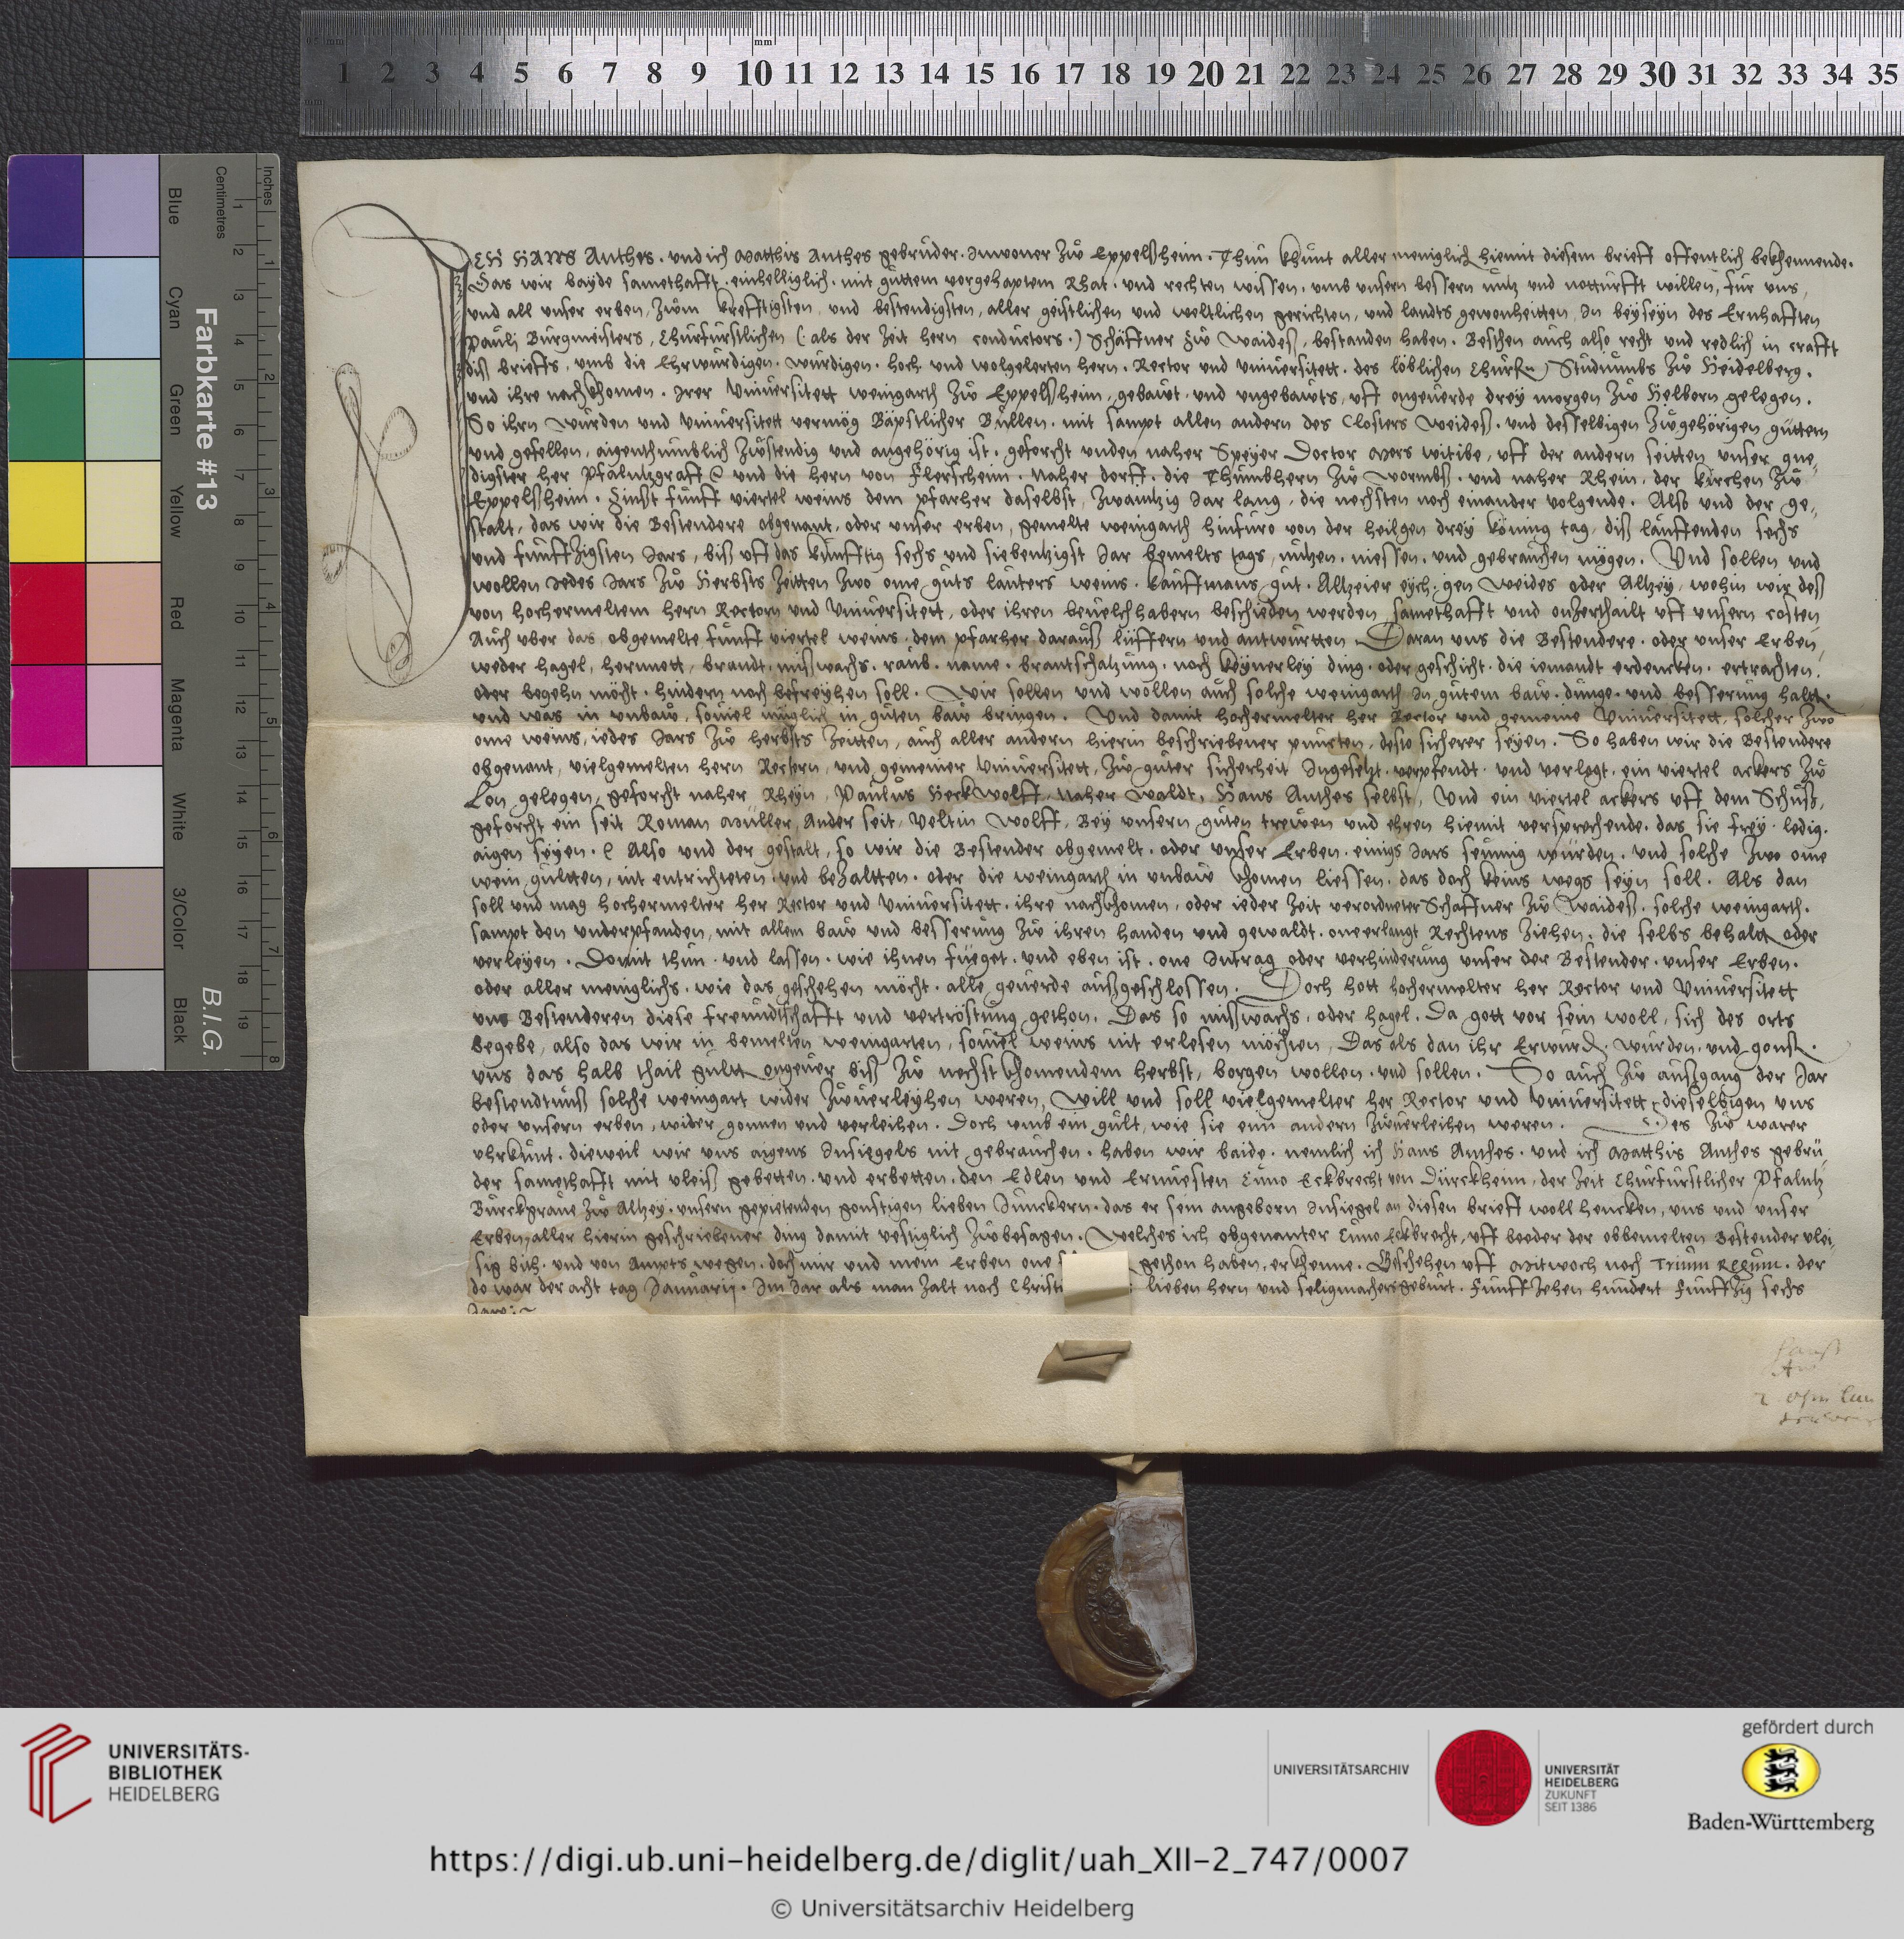 ICH HANS Anthes. und ich Matthis Anthes gebruder. Inwoner zů Eppelßheim. Thůn khůnt aller meniglich hiemit diesem brieff offentlich bekhennende.
Das wir baÿde samethafft. einhelliglich. mit gůttem vorgehaptem Rhat. und rechten wissen. umb unsern bessern nůtz und notturfft willen, für uns,
und all unser erben, zům krefftigsten und bestendigsten, aller geistlichen und weltlichen gerichten, und landts gewonheitten, In beÿseÿn des Ernhafften
Paůlj Bůrgmeisters, Chůrfůrstlichen (: als der Zeit hern conductors.) Schaffner zů Waideß, bestanden haben. Bestehen aůch also recht und redlich in crafft
diß brieffs, umb die Ehrwůrdigen. wůrdigen. hoch und wolgelerten hern. Rector und Universitett. des löblichen Studiumbs zů Heidelberg.
und ihre nachkhomen. Irer Universitett weingarth zů Eppelßheim, gebaůt und ungebaůts, uff ongeůerde dreÿ morgen zů Helborn gelegen.
So ihrn wůrden und Universitett vermög Bäpstlicher Bůllen. mit sampt allen andern des Closters Weideß. und desselbigen zůgehörigen gůttern
und gefellen, aigenthůmblich zůstendig und angehörig ist. geforcht unden naher Speÿer Doctor Mers witibe, uff der andern seitten unser gne¸
digster her Pfaltzgraff ꝛc und die hern von Flerscheim. Naher dorff. die Thůmbhern zů Wormbß. und naher Rhein, der kirchen zů
Eppelßheim. Zinßt fůnff viertel weins dem pfarher daselbst, zwantzig Jar lang, die nechsten noch einander volgende. Also und der ge¸
stalt, das wir die Bestendere obgenant, oder unser erben, gemelte weingarth hinfůro von der heilgen dreÿ könnig tag, diß laůffenden sechs
und fůnffzigsten Jars, biß uff das kůnfftig sechs und siebentzigst Jar bemelts tags, nůtzen. niessen. und gebraůchen mögen. Und sollen und
wollen Jedes Jars zů Herbsts Zeitten zwo ome gůts laůters weins. Kaůffmans gůt. Altzeier eÿch, gen Weides oder Altzeÿ, wohin wir deß
von hochermeltem hern Rectorn und Universitett, oder ihren bevelchhabern beschieden werden samethafft und onzerthailt uff unsern costen
Aůch uber das obgemelte fůnff viertel weins dem pfarher daraůß lůffern und antwůrtten. Daran uns die Bestendere. oder unser Erben,
weder hagel, hernnett, brandt, mißwachs. raůb. name. brantschatzůng. noch keÿnerleÿ ding. oder geschicht. die iemandt erdencken. ertrachten.
oder begehn möcht. hindern noch befreÿhen soll. Wir sollen und wollen aůch solche weingarth In gůtem baů. důnge. und besserung halten.
und was in unbaů, soviel müglich in gůten baů bringen. Und damit hochermelter her Rector und gemeine Universitett, solcher zwo
ome weins, iedes Jars zů herbsts Zeitten, aůch aller andern hierin beschriebener půncten, desto sicherer seÿen. So haben wir die Bestendere
obgenant, vielgemelten hern Rectorn, und gemeiner Universitett, zů gůter sicherheit Ingesetzt. verpfendt. und verlegt. ein viertel ackers zů
Lon gelegen, geforcht naher Rheÿn, Paůlůs Herkwolff, naher Waldt, Hans Anthes selbst, Und ein viertel ackers uff dem Schůß,
geforcht ein seit Roman Můller, Ander seit, Veltin Wolff, Beÿ unsern gůten trewen und ehren hiemit versprochende. das sie freÿ. ledig.
aigen seÿen. Also und der gestalt, so wir die Bestender obgemelt. oder unser Erben. einigs Jars seůmig wůrden. und solche zwo ome
wein gůltten, nit entrichteten und bezaltten. oder die weingarth in unbaů khomen liessen. das doch keins wegs seÿn soll. Als dan
soll und mag hochermelter her Rector und Universitett. ihre nachkhomen, oder ieder Zeit verordneter Schaffner zů Waideß. solche weingarth.
sampt den underpfanden, mit allem baů und besserůng zů ihren handen und gewaldt. one erlangt Rechtens ziehen. die selbs behalten oder
verleÿen. Domit thůn und lassen. wie ihnen füeget. und eben ist. one Intrag oder verhinderůng unser der Bestender. unser Erben.
oder aller meniglichs. wie das geschehen möcht. alle geůerde aůßgeschlossen. Doch hott hochermelter her Rector und Universitett
uns Bestenderen diese freůndtschafft und vertröstůng gethon. Das so mißwachs. oder hagel. Da gott vor sein woll, sich des orts
begebe, also das wir in bemelten weingarten, soviel weins nit erlesen möchten, Das als dan ihr Erwurd. wůrden. und gonst.
uns das halb thail gůlten ongeůer biß zů nechst khomendem herbst, borgen wollen. und sollen. So aůch zů aůßgang der Jar
bestendtnůß solche weingart wider zůverleÿhen weren, Will und soll vielgemelter her Rector und Universitett dieselbigen uns
oder unsern erben, wider gonnen und verleihen. Doch umb ein gůlt, wie sie eim andern zůverleihen weren. Des zů warer
uhrkůnt. dieweil wir uns aigens Insiegels nit gebraůchen. haben wir baide. nemlich ich Hans Anthes. und ich Matthis Anthes gebrů¸
der samethafft mit vleiß gebetten. und erbetten. den Edlen und Ernvesten Cůno Eckbrecht von Dürckheim, der Zeit Chůrfůrstlicher Pfaltz
Bůrckgraůe zů Altzeÿ. unsern gepietenden gonstigen lieben Jůnckern. das er sein angeborn Insiegel an diesen brieff woll hencken, uns und unser
Erben, aller hierin geschriebener ding damit vestiglich zůbesagen. Welches ich obgenanter Cůno Eckbrecht, uff beeder der obbemelten Bestender vlei¸
sig bith. und von Ampts wegen. doch mir und mein Erben one gethon haben, erkhenne. Geschehen uff Mitwoch noch Triům Regům. der
do war der acht tag Janůarij. Im Jar als man zalt noch Christ lieben hern und seligmachers gebůrt. Fůnffzehen hůndert Fůnffzig sechs
Jare:~
Hanß
2 ohm
1 2 3 4 5 6 7 8 9 10 11 12 13 14 15 16 17 18 19 20 21 22 23 24 25 26 27 28 29 30 31 32 33 34 35
mm
Inches
Centimetres
Farbkarte #13
B.I.G.
Blue Cyan Green Yellow Red Magenta White 3/Color Black
UNIVERSITÄTS-
BIBLIOTHEK
HEIDELBERG
UNIVERSITÄTSARCHIV
UNIVERSITÄT
HEIDELBERG
ZUKUNFT
SEIT 1386
gefördert durch
Baden-Württemberg
https://digi.ub.uni-heidelberg.de/diglit/uah_XII-2_747/0007
© Universitätsarchiv Heidelberg